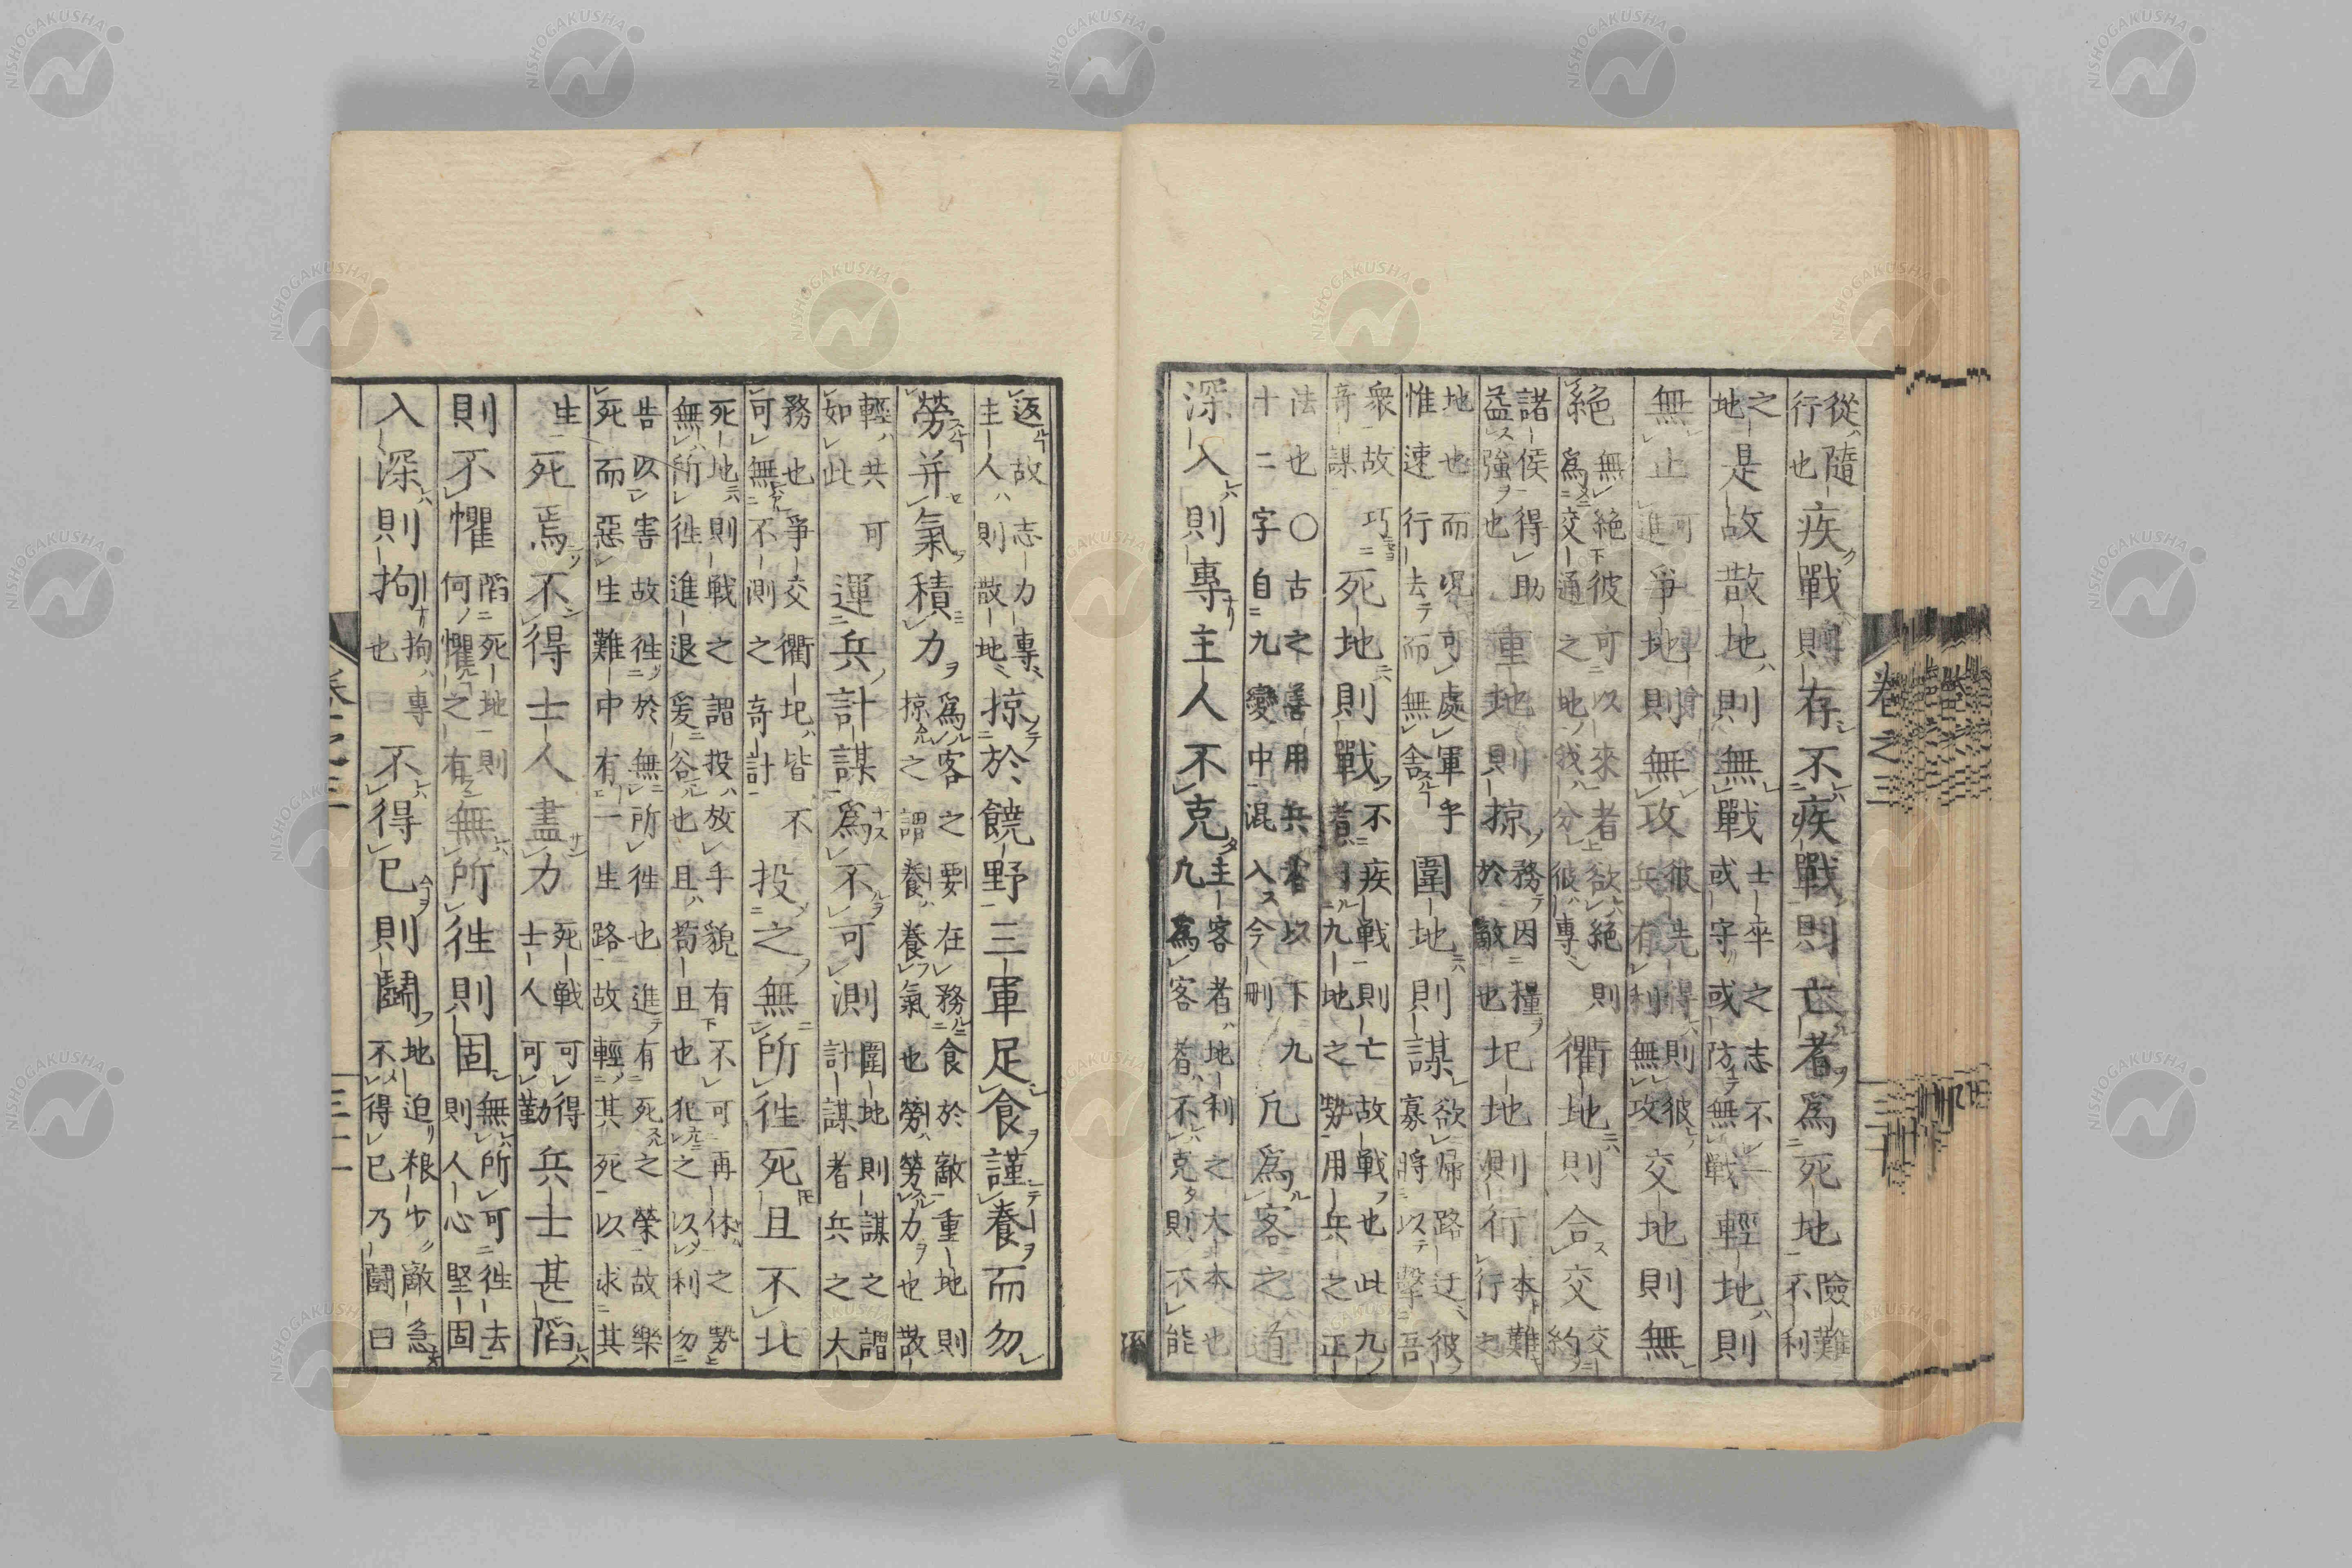 從隨
行也
疾戰則存不疾戰則亡者爲死地
險難
不利
之
地
是故散地則無戰
士卒之志不
或守或防無戰
輕地則
無止
可
進
爭地則無攻
彼先得則彼
兵有利無攻
交地則無
絕
無絕彼可以來者欲絕則
爲交通之地我分彼專
衢地則合交
交
約
諸侯得助
益強也
重地則掠
務因糧
於敵也
圯地則行
本難
行之
地也而況可處軍乎
惟速行去而無舍
圍地則謀
欲歸路迂彼
寡將以擊吾
衆故巧
奇謀
死地則戰
不疾戰則亡故戰也此九
者九地之勢用兵之正
法也〇古之善用兵者以下九
十二字自九變中混入今刪
凡爲客之道
深入則專主人不克
主客者地利之大本也
凡爲客者不克則不能
卷之三
返故志力專
主人則散地
掠於饒野三軍足食謹養而勿
勞并氣積力
爲客之要在務食於敵重地則
掠之謂養養氣也勞勞力也散
輕共可
如此
運兵計謀爲不可測
圍地則謀之謂
計謀者兵之大
務也爭交衢圯皆不
可無不測之奇計
投之無所徃死且不北
死地則戰之謂投放手貌有不可再休之勢
無所徃進退爰谷也且苟且也犯之以利勿
告以害故徃於無所徃也進有死之榮故樂
死而惡生難中有一生路故輕其死以求其
生
死焉不得士人盡力
死戰可得
士人可勤
兵士甚陷
則不懼
陷死地則
何懼之有
無所徃則固
無所可徃去
則人心堅固
入深則拘
拘專
也
不得已則鬪
地迫粮少敵急
不得已乃鬪曰
三十一
NISHOGAKUSHA